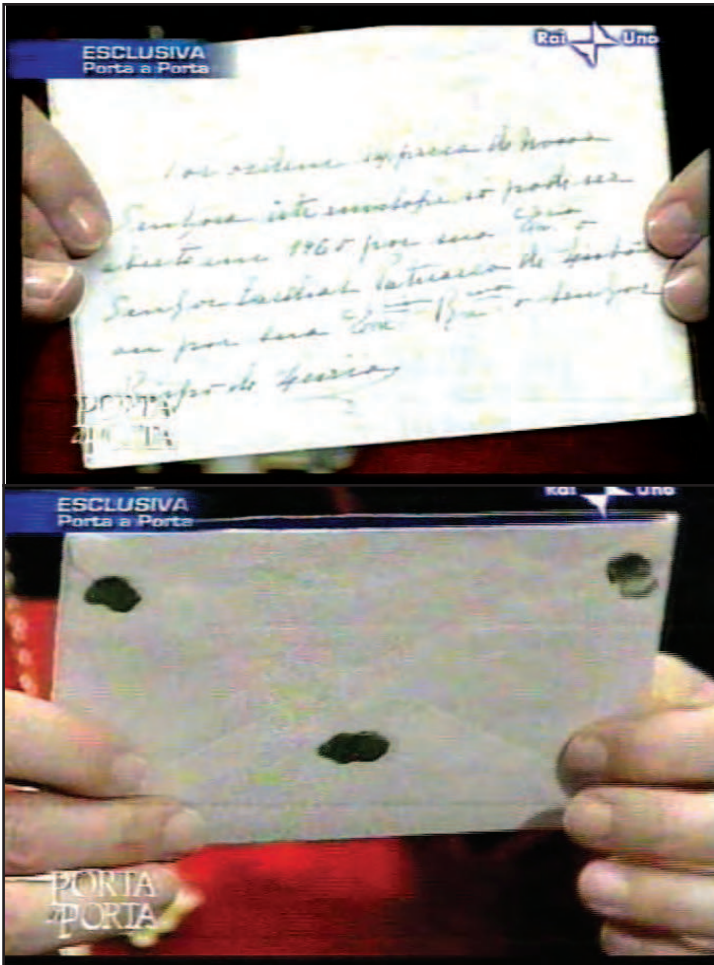 ESCLUSIVA
Porta a Porta
Rai Uno
Por ordem expressa de Nossa
Senhora este envelope só pode ser
aberto em 1960 por sua Cia
Senhor Cardeal Patriarca de Lisboa
ou por sua Ex.cia R.ma o Senhor
Bispo de Leiria
PORTA
a PORTA
ESCLUSIVA
Porta a Porta
Rai Uno
PORTA
a PORTA